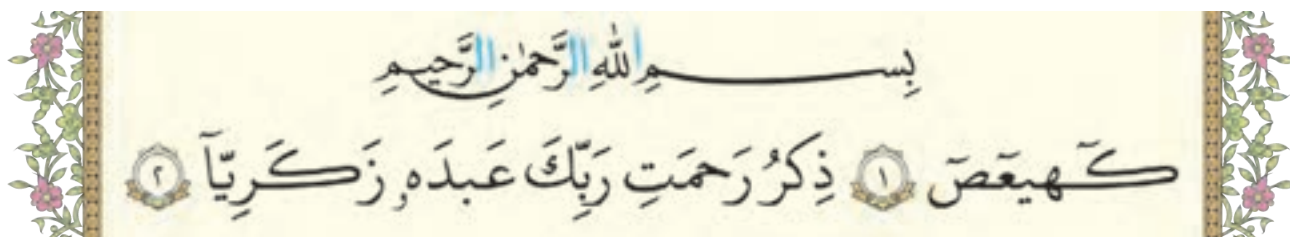 بِسمِ اللّٰهِ الرَّحمٰنِ الرَّحيمِ
كٓهيعٓصٓ ﴿١﴾ ذِكرُ رَحمَتِ رَبِّكَ عَبدَهۥ زَكَرِيّآ ﴿٢﴾